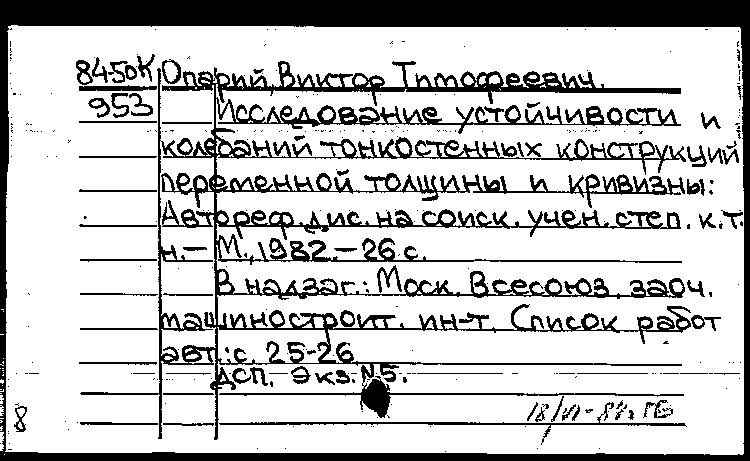 8450К Опарий, Виктор Тимофеевич.
953 Исследование устойчивости и
колебаний тонкостенных конструкций
переменной толщины и кривизны:
Автореф. дис. на соиск. учен. степ. к.т.
н. — М., 1982. — 26 с.
В надзаг.: Моск. Всесоюз. заоч.
машиностроит. ин-т. Список работ
авт.: с. 25-26
ДСП. Экз. №5.
8